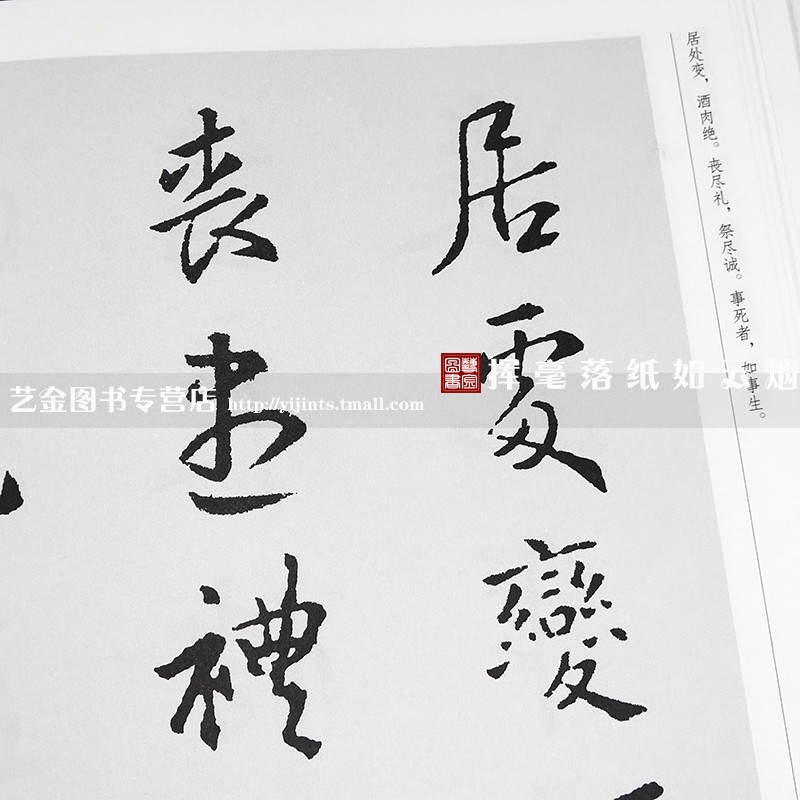 居处变，酒肉绝。丧尽礼，祭尽诚。事死者，如事生。
居處變
喪盡禮
艺金图书专营店 http://yijints.tmall.com
挥毫落纸如云烟